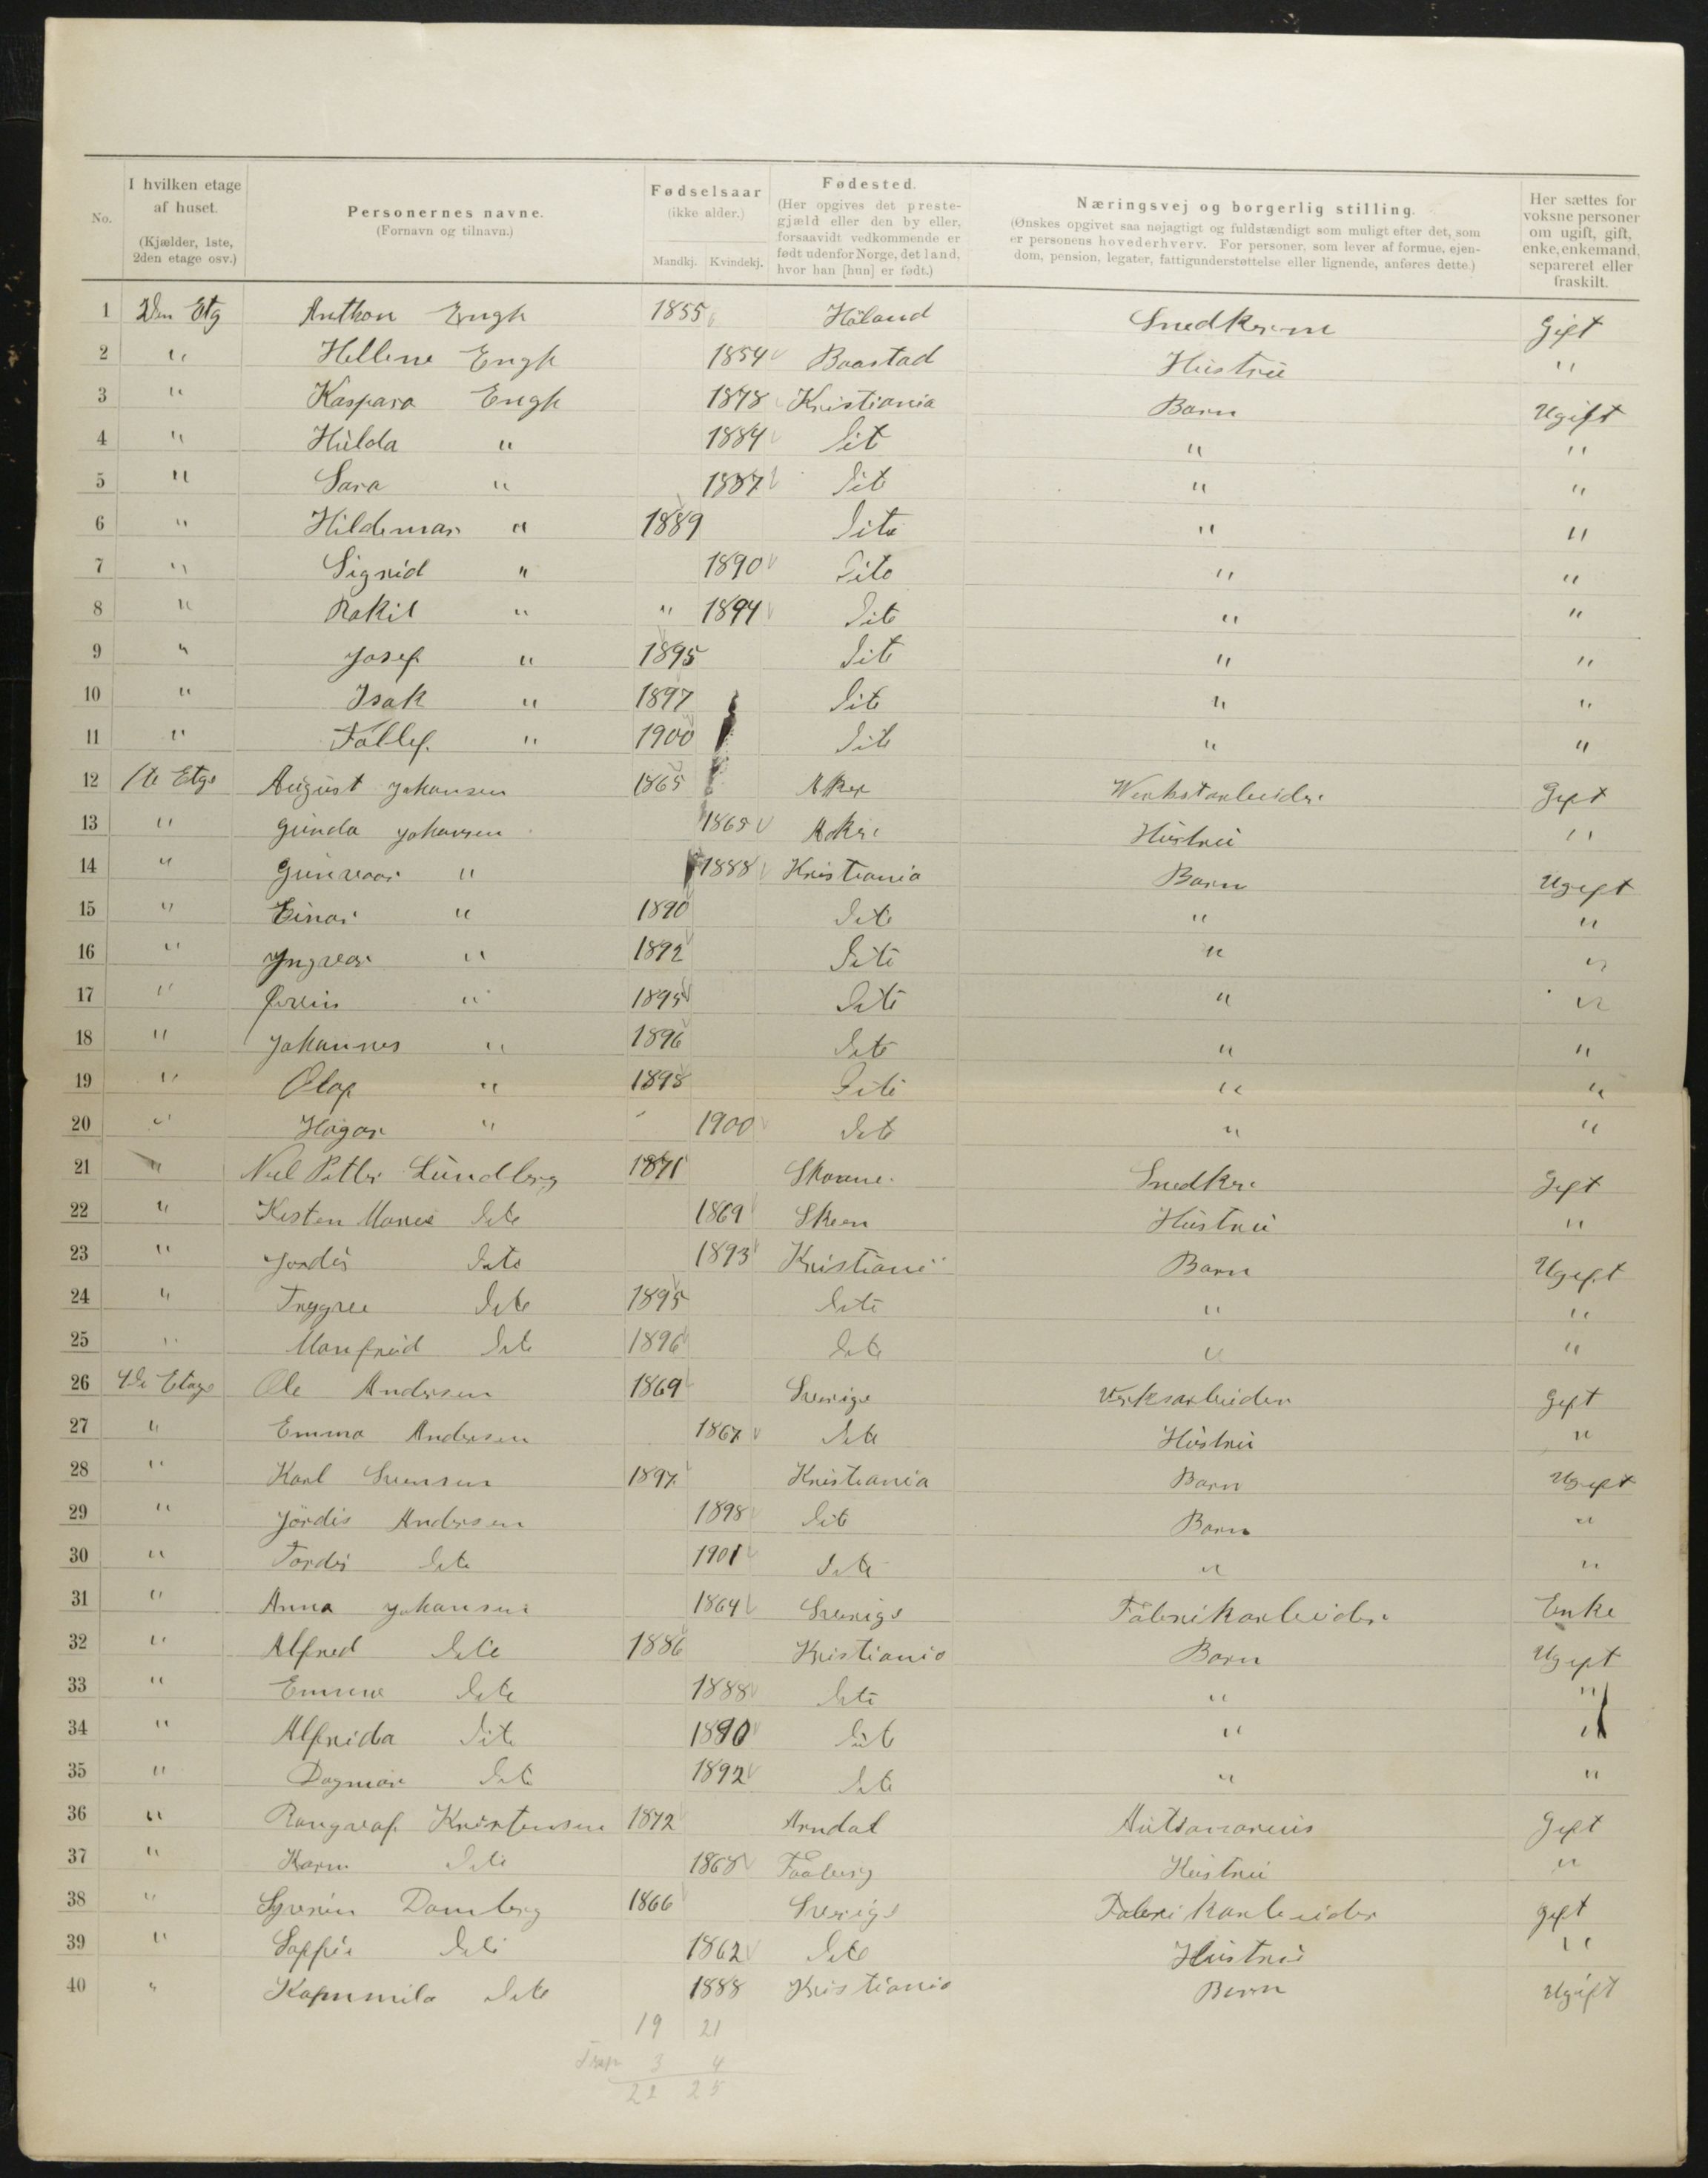 No. | I hvilken etage af huset. (Kjælder, 1ste, 2den etage osv.) | Personernes navne. (Fornavn og tilnavn.) | Fødselsaar (ikke alder.) Mandkj. Kvindekj. | Fødested. (Her opgives det prestegjæld eller den by eller, forsaavidt vedkommende er født udenfor Norge, det land, hvor han [hun] er født.) | Næringsvej og borgerlig stilling. (Ønskes opgivet saa nøjagtigt og fuldstændigt som muligt efter det, som er personens hovederhverv. For personer, som lever af formue, ejendom, pension, legater, fattigunderstøttelse eller lignende, anføres dette.) | Her sættes for voksne personer om ugift, gift, enke, enkemand, separeret eller fraskilt.
1 2den Etg Anthon Engh 1855 Høland Snedker Gift
2 " Hellene Engh 1854 Baastad Hustru "
3 " Kaspara Engh 1878 Kristiania Barn Ugift
4 " Hulda " 1884 Dito " "
5 " Sara " 1887 Dito " "
6 " Hildemar " 1889 Dito " "
7 " Sigrid " 1890 Dito " "
8 " Rakil " " 1894 Dito " "
9 " Josef " 1895 Dito " "
10 " Isak " 1897 Dito " "
11 " Tollef " 1900 Dito " "
12 1te Etge August Johansen 1865 Aker Werkstarbeider Gift
13 " Gunda Johansen 1865 Aker Hustru "
14 " Gunvaar " 1888 Kristiania Barn Ugift
15 " Einar " 1890 Dito " "
16 " Yngvar " 1892 Dito " "
17 " " 1895 Dito " "
18 " Johannes " 1896 Dito " "
19 " Olaf " 1898 Dito " "
20 " Hagar " 1900 Dito " "
21 " Nil Petter Lundberg 1871 Skaane Snedker Gift
22 " Kesten Marie Dito 1869 Skeen Hustru "
23 " Jordis Dito 1893 Kristiani Barn Ugift
24 " Tryggve Dito 1895 Dito " "
25 " Manfred Dito 1896 Dito " "
26 4de Etage Ole Andersen 1869 Sverige Verksarbeider Gift
27 " Emma Andersen 1867 Dito Hustru "
28 " Karl Svensen 1897 Kristiania Barn Ugift
29 " Jördis Andersen 1898 Dito Barn "
30 " Tordis Dito 1901 Dito " "
31 " Anna Johansen 1864 Sverige Fabrikarbeider Enke
32 " Alfred Dito 1886 Kristiania Barn Ugift
33 " Emma Dito 1888 Dito " "
34 " Alfrida Dito 1890 Dito " "
35 " Dagmar Dito 1892 Dito " "
36 " Rangvaf Kristensen 1872 Arndal Gift
37 " Karn Dito 1868 Faaberg Hustru "
38 " Damberg 1866 Sverige Fabrikarbeider gift
39 " Soffie Dito 1862 Dito Hustru "
40 " Dito 1888 Kristiania Barn Ugift
19 21
3 4
22 25